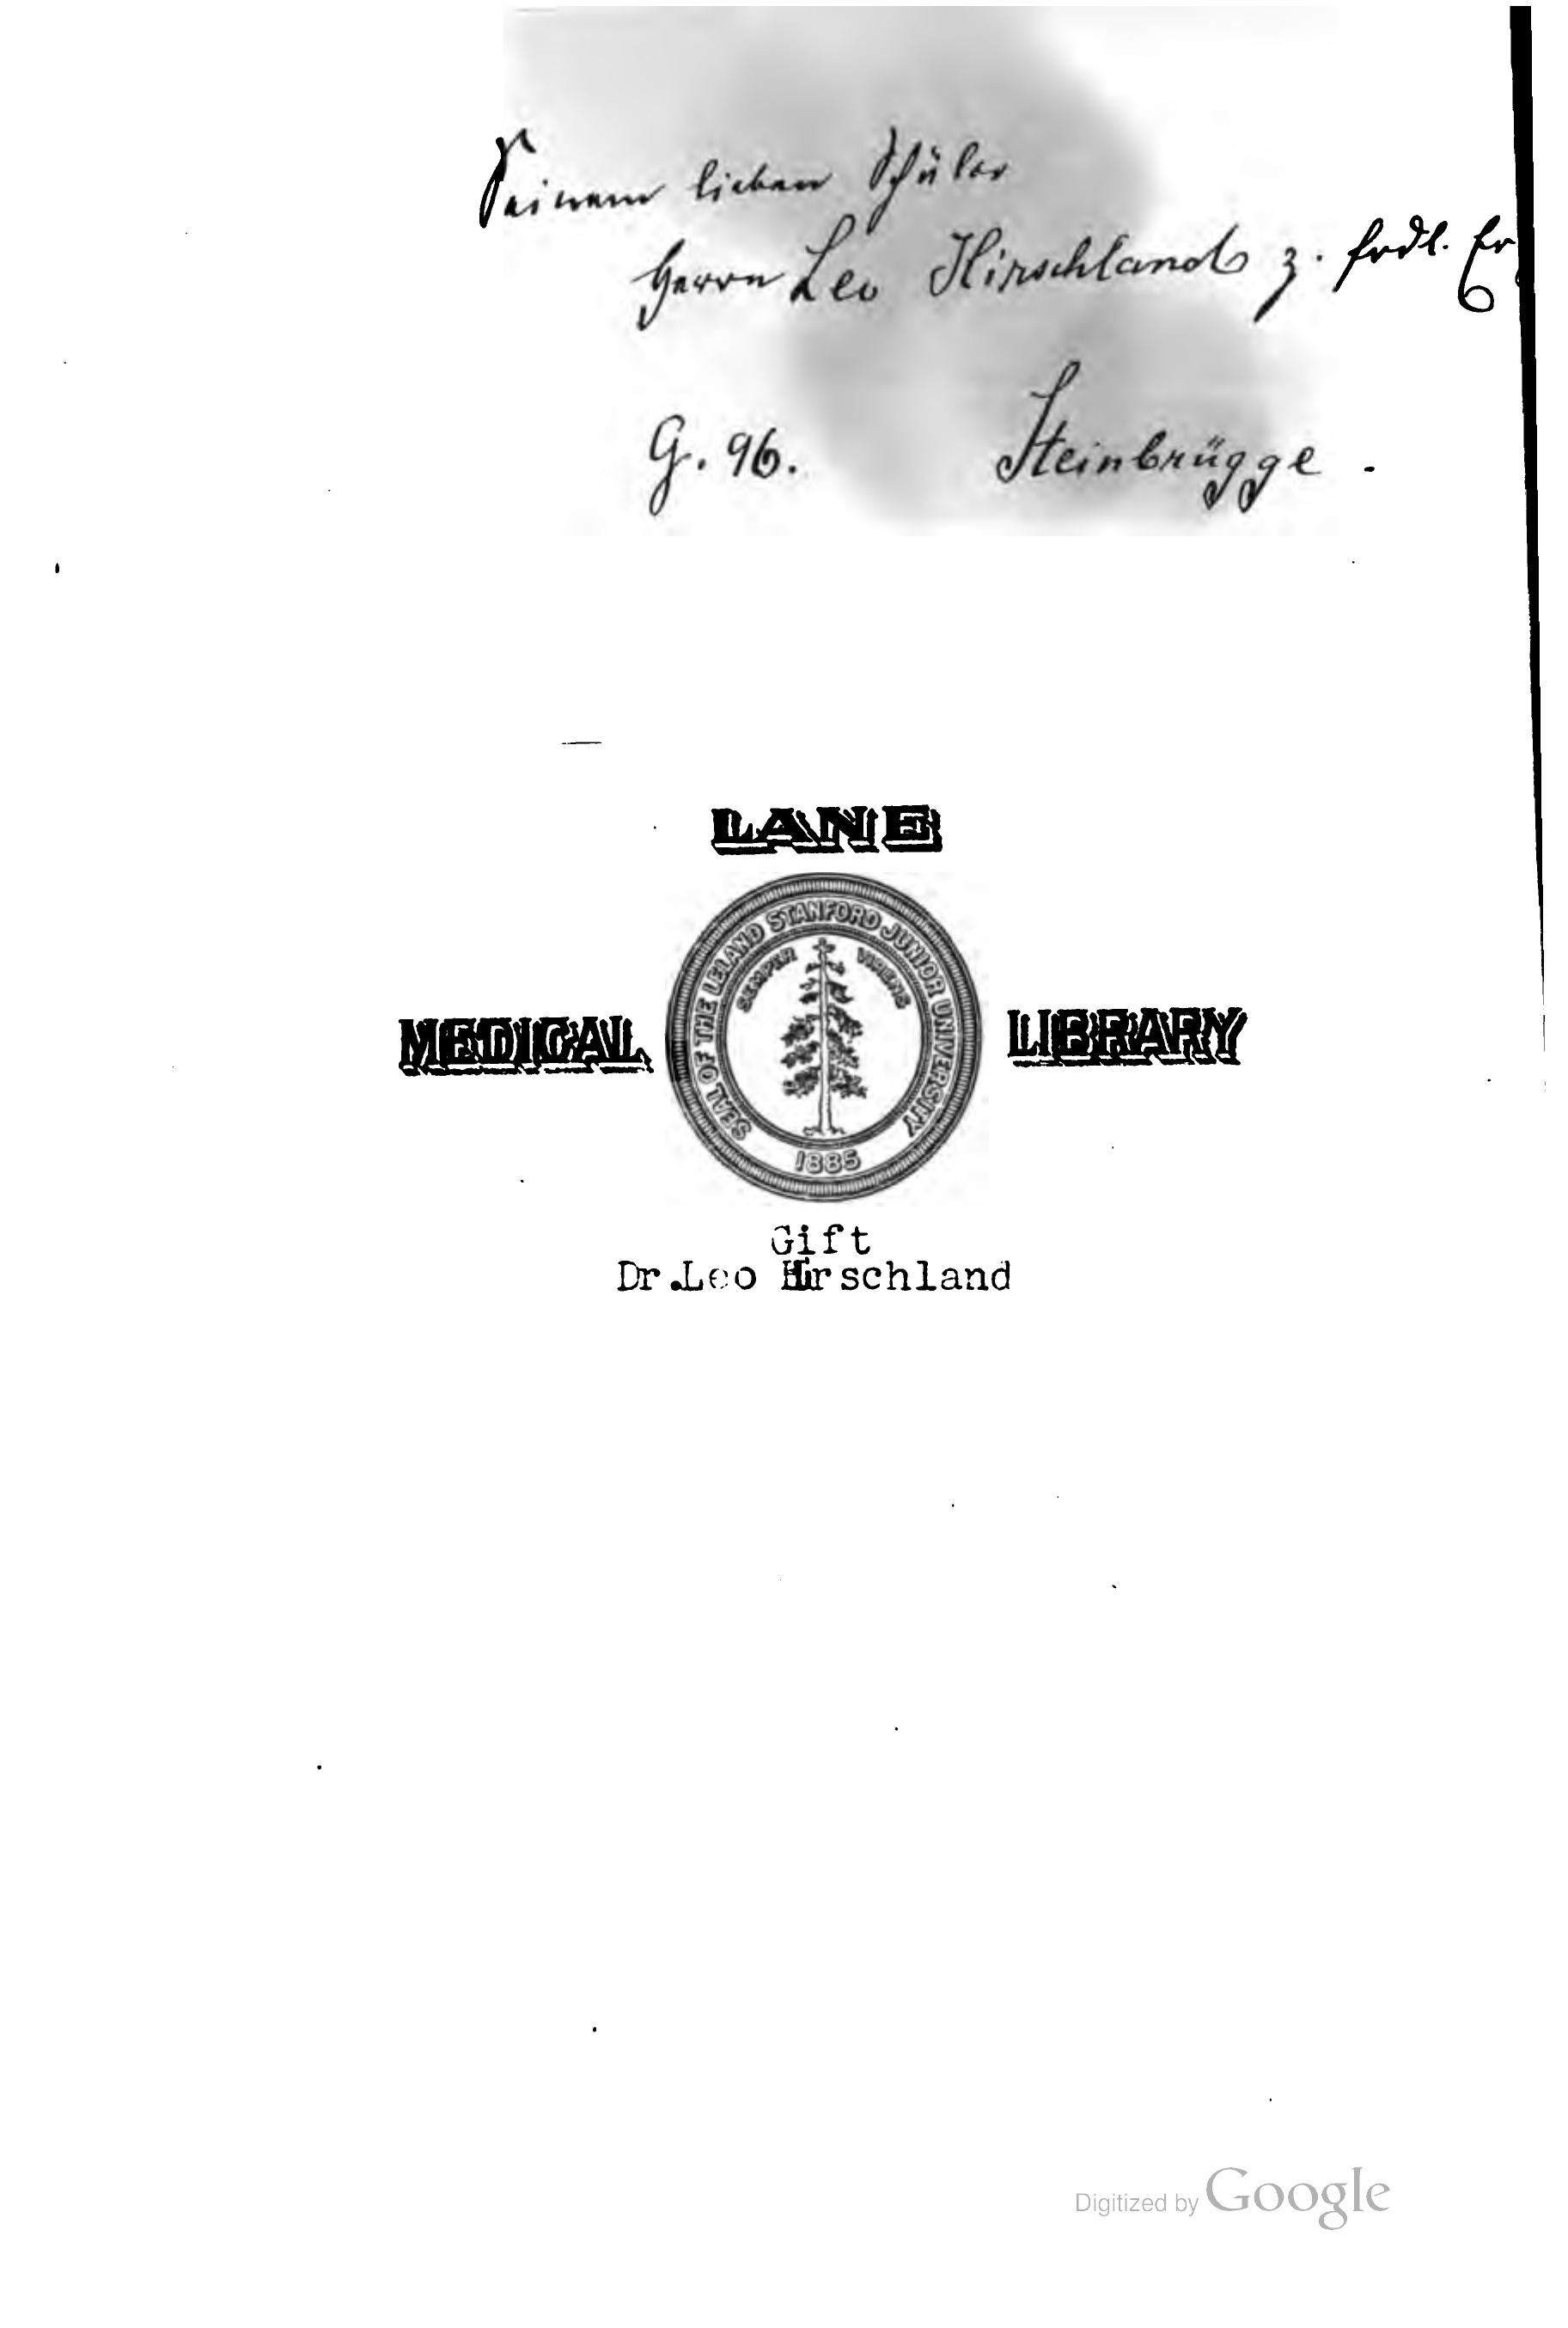 Seinem lieben Schüler
Herrn Leo Hirschland z. frdl. Er
G. 96. Steinbrügge.
LANE
MEDICAL LIBRARY
SEAL OF THE LELAND STANFORD JUNIOR UNIVERSITY
SEMPER VIRENS
1885
Gift
Dr.Leo Hirschland
Digitized by Google